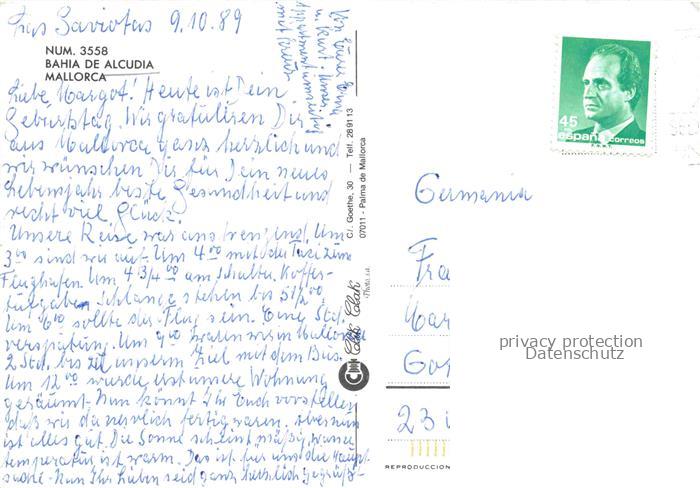 Las Gaviotas 9.10.89
NUM. 3558
BAHIA DE ALCUDIA
MALLORCA
Liebe Margot! Heute ist Dein
Geburtstag. Wir gratulieren Dir
aus Mallorca ganz herzlich und
wir wünschen Dir für Dein neues
Lebensjahr beste Gesundheit und
recht viel Glück.
Unsere Reise war anstrengend. Um
3 00 sind wir auf. Um 4 00 mit der Taxi zum
Flughafen. Um 4 3/4 00 am Schalter. Koffer-
aufgaben Schlange stehen bis 5 1/2 00.
Um 6 00 sollte der Flug sein. Eine Std.
verspätung. Um 9 00 waren wir in Mallorca
2 Std. bis zu unserm Ziel mit dem Bus.
Um 12 00 wurde erst unsere Wohnung
geräumt. Nun könnt Ihr Euch vorstellen
daß wir da nervlich fertig waren. Aber nun
ist alles gut. Die Sonne scheint mäßig, wasser
temperatur ist warm. Das ist für uns die Haupt
sache. Nun Ihr Lieben seid ganz herzlich gegrüßt
von Eurer
u. Kurt. Unser
Appartement
C/. Goethe, 30 — Telf. 289113
07011 - Palma de Mallorca
Clik Clak
Photo, s.a.
45
españa correos
Germania
Fra
Mar
Gos
23
privacy protection
Datenschutz
REPRODUCCION